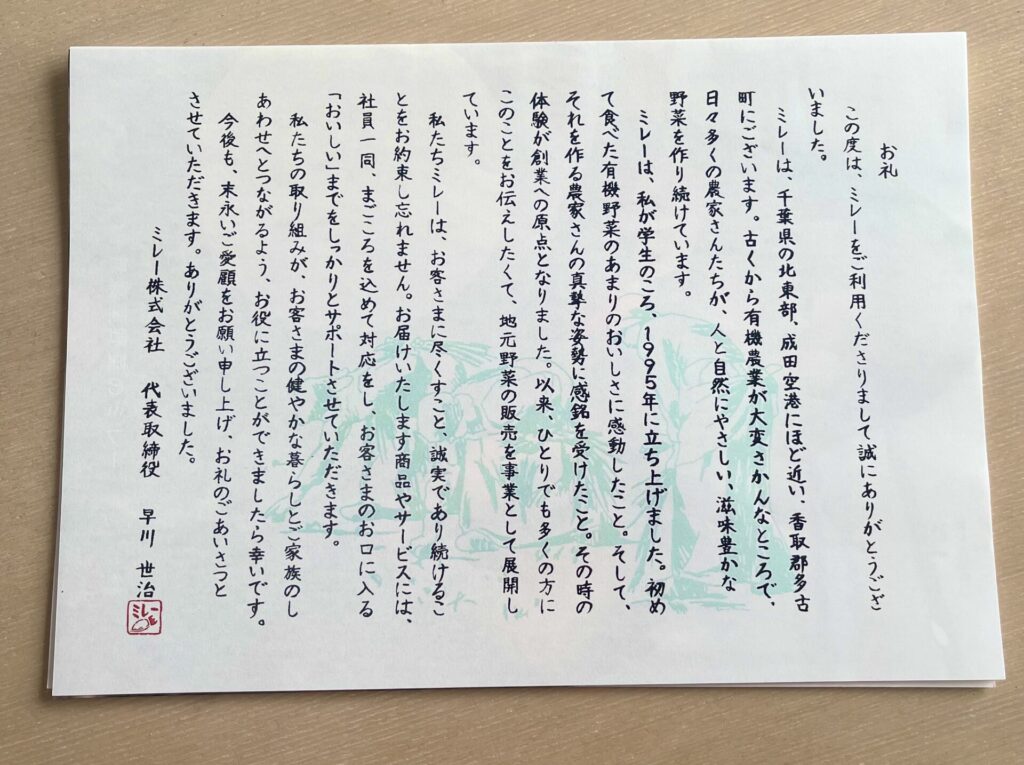 お礼
この度は、ミレーをご利用くださりまして誠にありがとうござ
いました。
ミレーは、千葉県の北東部、成田空港にほど近い、香取郡多古
町にございます。古くから有機農業が大変さかんなところで、
日々多くの農家さんたちが、人と自然にやさしい、滋味豊かな
野菜を作り続けています。
ミレーは、私が学生のころ、1995年に立ち上げました。初め
て食べた有機野菜のあまりのおいしさに感動したこと。そして、
それを作る農家さんの真摯な姿勢に感銘を受けたこと。その時の
体験が創業への原点となりました。以来、ひとりでも多くの方に
このことをお伝えしたくて、地元野菜の販売を事業として展開し
ています。
私たちミレーは、お客さまに尽くすこと、誠実であり続けるこ
とをお約束し忘れません。お届けいたします商品やサービスには、
社員一同、まごころを込めて対応をし、お客さまのお口に入る
「おいしい」までをしっかりとサポートさせていただきます。
私たちの取り組みが、お客さまの健やかな暮らしとご家族のし
あわせへとつながるよう、お役に立つことができましたら幸いです。
今後も、末永いご愛顧をお願い申し上げ、お礼のごあいさつと
させていただきます。ありがとうございました。
ミレー株式会社 代表取締役 早川 世治
ミレー